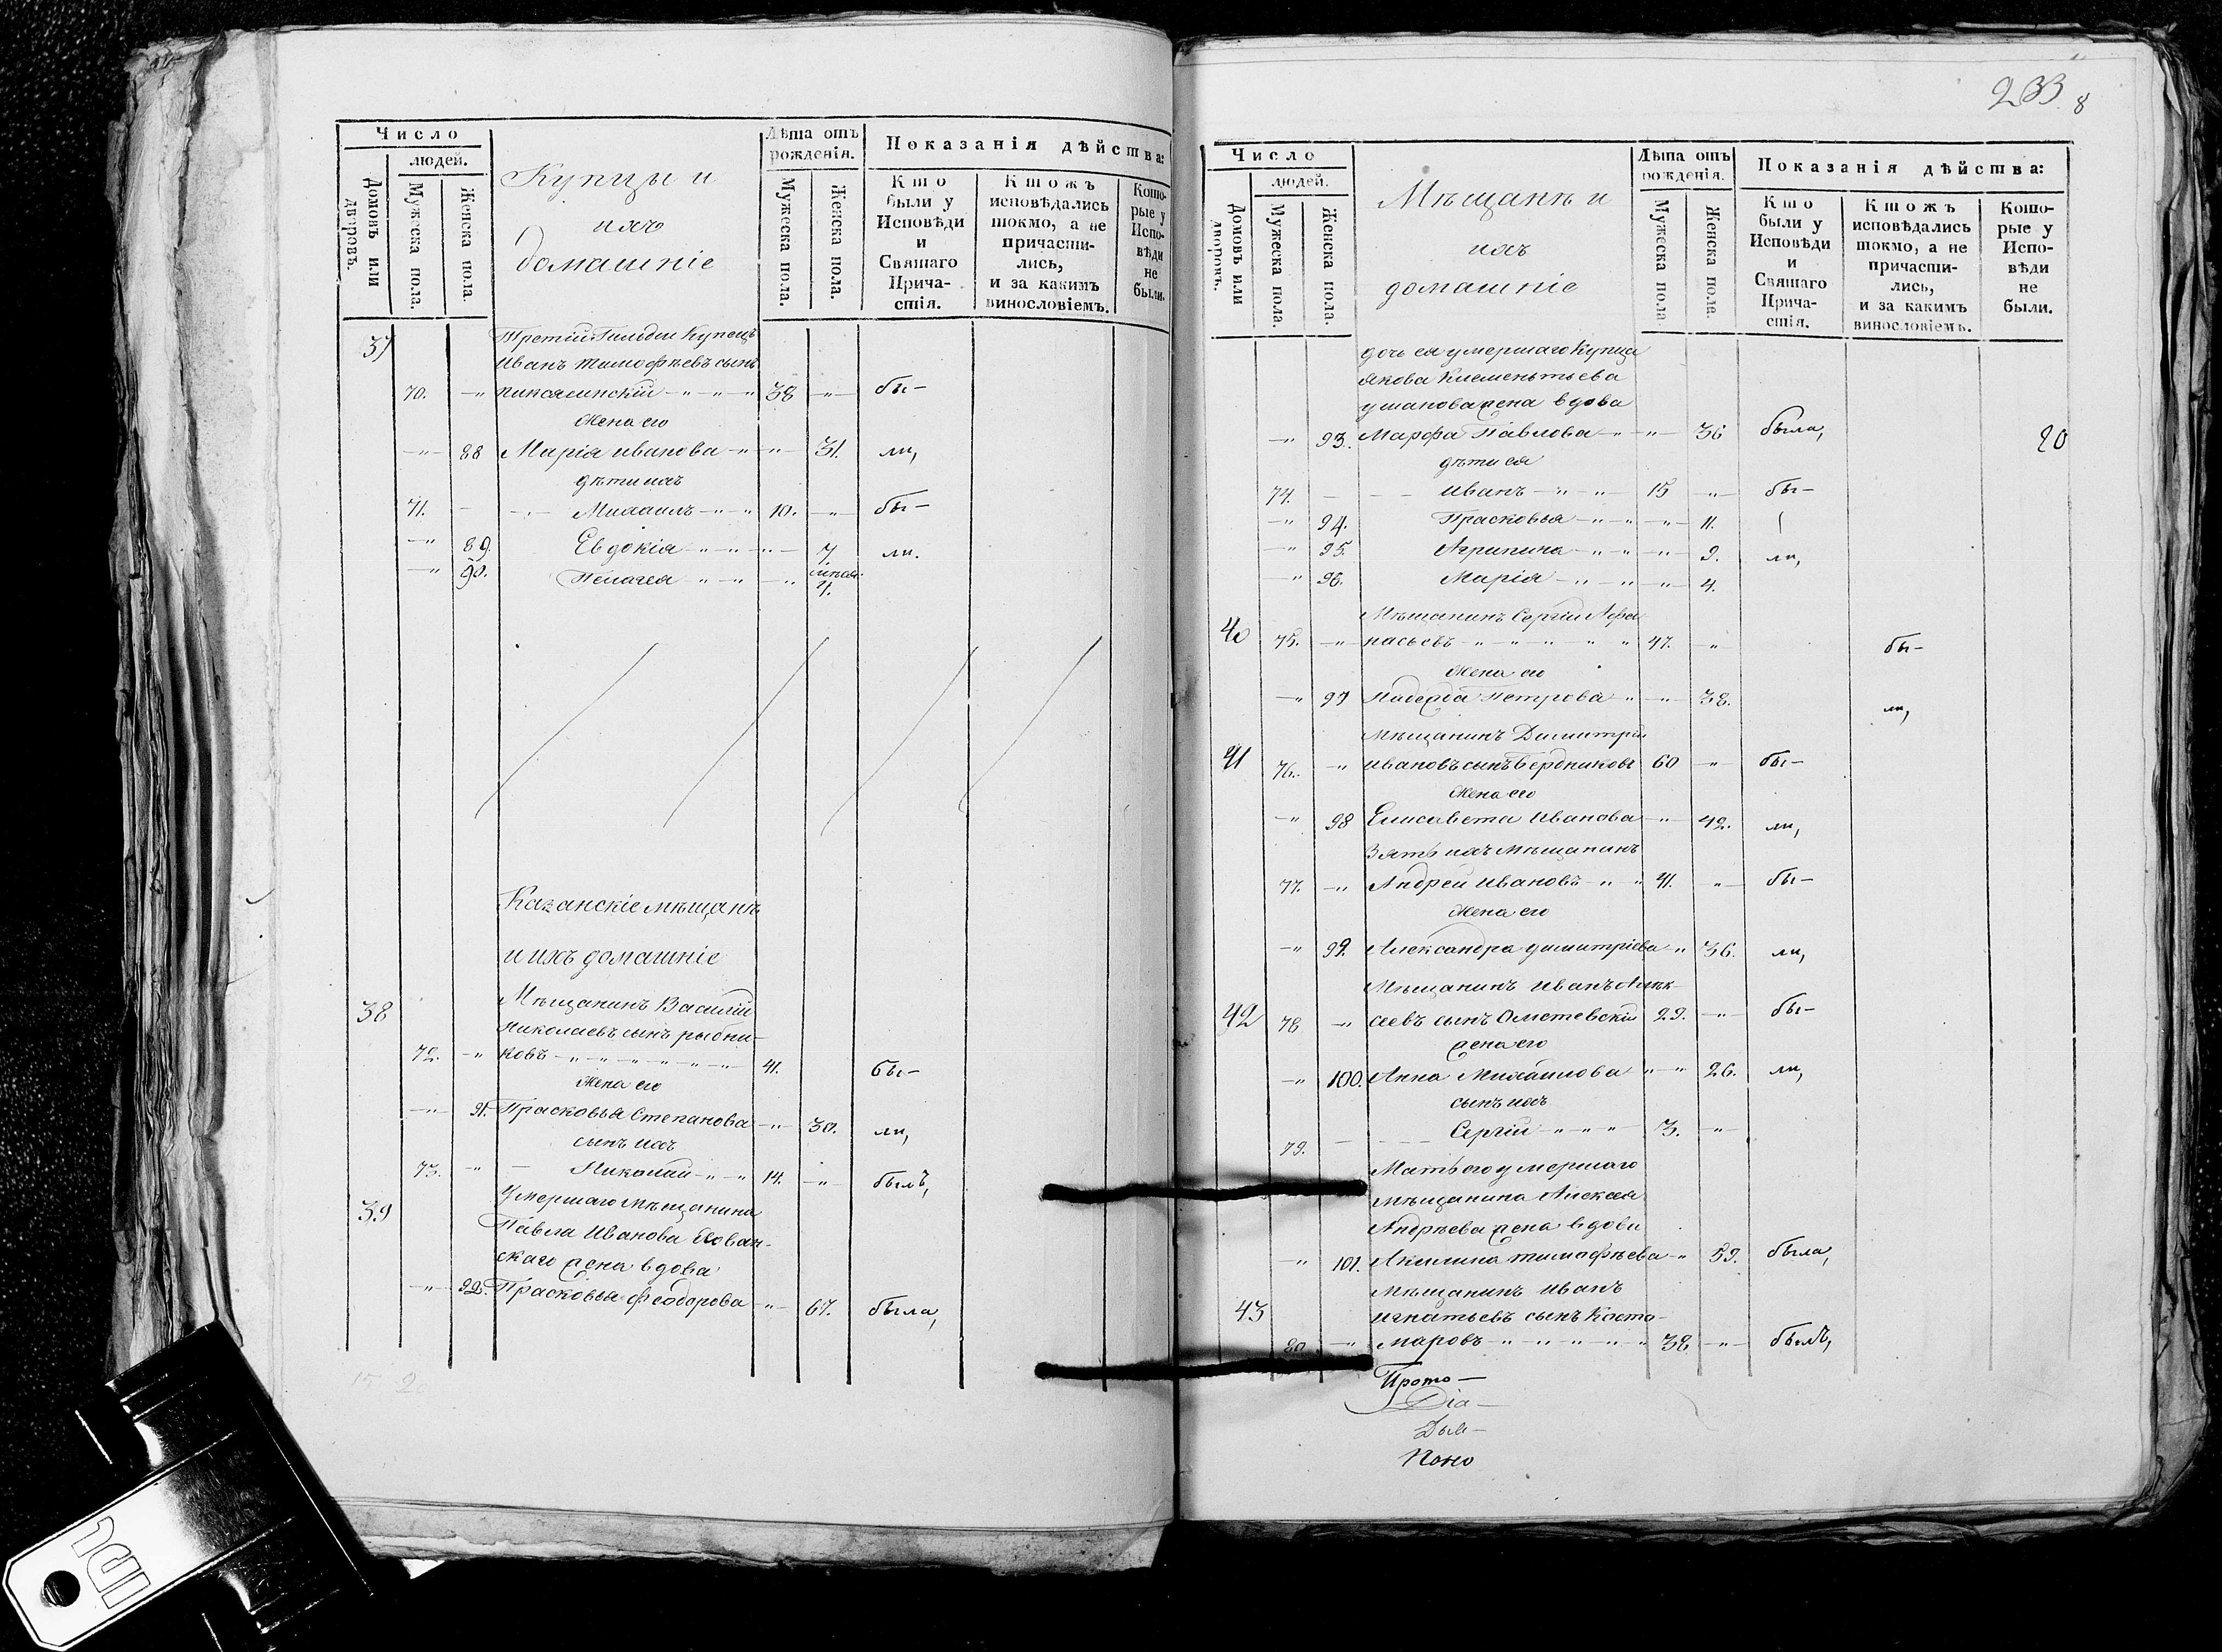 Число
людей.
Домовъ или дворовъ.
Мужеска пола.
Женска пола.
Купцы и
ихъ
домашніе
Лѣта отъ рожденія.
Мужеска пола.
Женска пола.
Показанія дѣйства:
Кто были у Исповѣди и Святаго Прича-стія.
Ктожъ исповѣдались токмо, а не причасти-лись, и за какимъ винословіемъ.
Кото-рые у Испо-вѣди не были.
37 Третій Гильдіи Купецъ
Иванъ Тимофѣевъ сынъ
70. -"- -"- -"- -"- 38 -"- бы-
Жена его
-"- 88 Марія Иванова -"- -"- 31. ли,
дѣти ихъ
71. - -"- Михаилъ -"- -"- 10. -"- бы-
-"- 89. Евдокія -"- -"- -"- 7 ли.
-"- 90. Пелагея -"- -"- -"- 4.
Казанскіе мѣщанѣ
и ихъ домашніе
38 Мѣщанинъ Василій
Николаевъ сынъ рыбни-
72. -"- ковъ -"- -"- -"- -"- 41. бы-
Жена его
-"- 91. Прасковья Степанова -"- 30. ли,
сынъ ихъ
73. -"- - Николай -"- -"- 14. -"- былъ,
39 Умершаго мѣщанина
Павла Иванова
скаго жена вдова
-"- 92. Прасковья Феодорова -"- 67. была,
233 8
Число
людей.
Домовъ или дворовъ.
Мужеска пола.
Женска пола.
Мѣщанѣ и
ихъ
домашніе
Лѣта отъ рожденія.
Мужеска пола.
Женска пола.
Показанія дѣйства:
Кто были у Исповѣди и Святаго Прича-стія.
Ктожъ исповѣдались токмо, а не причасти-лись, и за какимъ винословіемъ.
Кото-рые у Испо-вѣди не были.
дочь ея умершаго Купца
Якова Клементьева
жена вдова
-"- 93. Марфа Павлова -"- -"- 36 была, 20
дѣти ея
74. - - - Иванъ -"- -"- 15 -"- бы-
-"- 94. Прасковья -"- -"- -"- 11.
-"- 95. Агрипина -"- -"- -"- 9. ли,
-"- 96. Марія -"- -"- -"- 4.
40 Мѣщанинъ Сергій Афа-
75. -"- насьевъ -"- -"- -"- -"- 47. -"- бы-
Жена его
-"- 97 Надежда Петрова -"- -"- 38. ли,
41 Мѣщанинъ Димитрій
76. -"- Ивановъ сынъ Бердниковъ 60 -"- бы-
Жена его
-"- 98 Елисавета Иванова -"- 42. ли,
Зять ихъ мѣщанинъ
77. -"- Андрей Ивановъ -"- -"- 41. -"- бы-
Жена его
-"- 99. Александра Димитріева -"- 36. ли,
Мѣщанинъ Иванъ Алек-
42 78 -"- сеевъ сынъ Ометевскій 29. -"- бы-
жена его
-"- 100. Анна Михайлова -"- -"- 26. ли,
сынъ ихъ
79. - - - Сергій -"- -"- -"- 3. -"-
Мать его умершаго
мѣщанина Алексея
Андрѣева жена вдова
-"- 101. Акилина Тимофѣева -"- 59. была,
43 Мѣщанинъ Иванъ
Игнатьевъ сынъ Косто-
80 -"- маровъ -"- -"- -"- -"- 38 -"- былъ,
Прото-
Діа-
Дья-
Поно